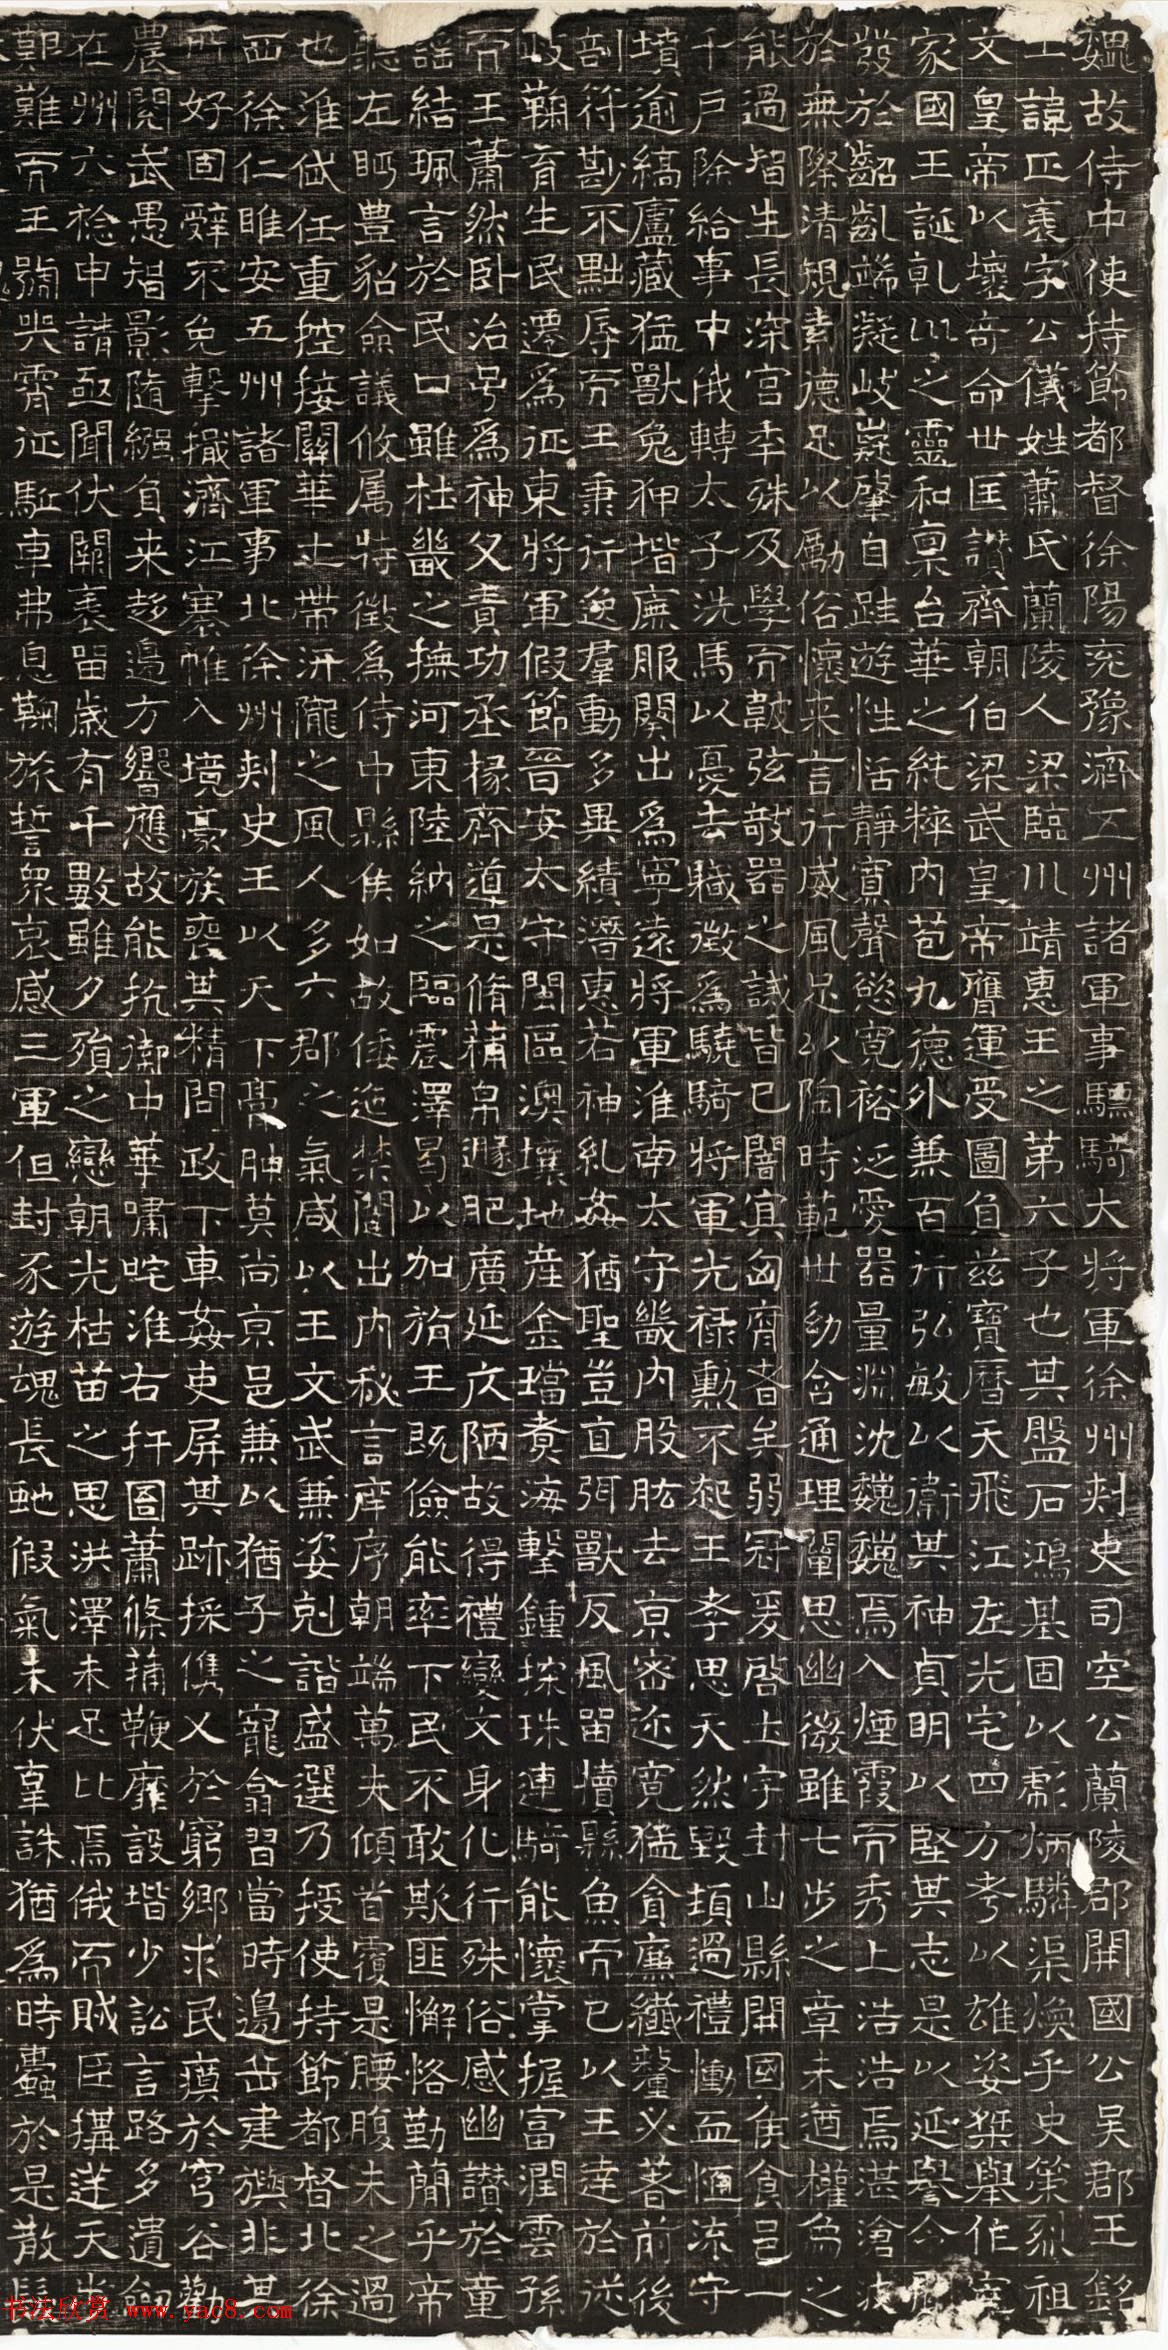 魏故侍中使持節都督徐陽兖豫濟五州諸軍事驃騎大將軍徐州刾史司空公蘭陵郡開國公吴郡王
諱正表字公儀姓蕭氏蘭陵人梁臨川靖惠王之第六子也其盤石鴻基固以彪炳驎渠煥乎史筞烈祖
文皇帝以壞奇命丗匡讃齊朝伯梁武皇帝膺運受圖負兹寶曆天飛江左光宅四方考以雄姿桀舉作
家國王誕乹川之靈和稟台華之純粹内苞九德外兼百行弘敏以衞其神貞明以堅其志是以延譽
發於齠齓端凝岐嶷肇自跬遊性恬靜寡聲慾寛裕泛愛器量淵沈巍巍焉入煙霞而秀上浩浩焉湛滄
於無際清規素德足以勵俗懷来言行威風足以陶時範丗幼含通理闡思幽微雖七步之章未遒權為之
能過智生長深宫年殊及學而韍弦敧器之誡皆已闇寘匈㝛者矣弱冠爰啓土宇封山縣開國侯食邑
千户除給事中俄轉太子洗馬以憂去職徵為驍騎將軍光禄勳不起王孝思天然毁頊過禮慟血恒流守
墳逾縞廬藏猛獸兔狎堦廡服闋出為寧遠將軍淮南太守畿内股肱去京密迩寛猛貪廉纖釐必著前後
剖符尠不點辱而王秉行逸羣動多異績潛惠若神糺姦猶聖豈直弭獸反風畱犢縣魚而已以王逹於
鞠育生民遷為征東將軍假節晉安太守閩區澳壤地産金璫賮海擊鍾探珠連騎能懷掌握富潤雲孫
而王蕭然卧治号為神父責功丞掾齊道是脩補帛邊肥廣延仄陋故得禮變文身化行殊俗感幽讃於
謡結珮言於民口雖杜畿之撫河東陸納之臨震澤曷以加旃王既儉能率下民不敢欺匪懈恪勤簡乎帝
聽左眄豊貂僉議攸属特徵為侍中縣侯如故倭迤禁闈出内秘言庠序朝端萬夫傾首覆是腰腹未之過
也淮㳀任重控接關華土帶汧隴之風人多六郡之氣咸以王文武兼姿剋諧盛選乃授使持節都督北徐
西徐仁睢安五州諸軍事北徐州刾史王以天下髙胂莫尚京邑兼以猶子之寵翕習當時邊岳建旟非其
所好固辝不免擊擑濟江褰帷入境豪族喪其精問政下車姦吏屏其跡採儁乂於窮鄉求民瘼於穹谷勸
農閲武愚智影随繦負来趍邉方響應故能抗禦中華嘯咤淮右扞圄蕭條蒱鞭靡設堦少訟言路多遺
在州六稔申請亟聞伏闕表畱歲有千數雖夕殞之戀朝光枯苗之思洪澤未足比焉俄而賊臣搆逆天
難而王號哭霄征駈車弗息鞠旅誓衆哀感三軍但封豕遊魂長虵假氣未伏辜誅猶為時蠹於是散